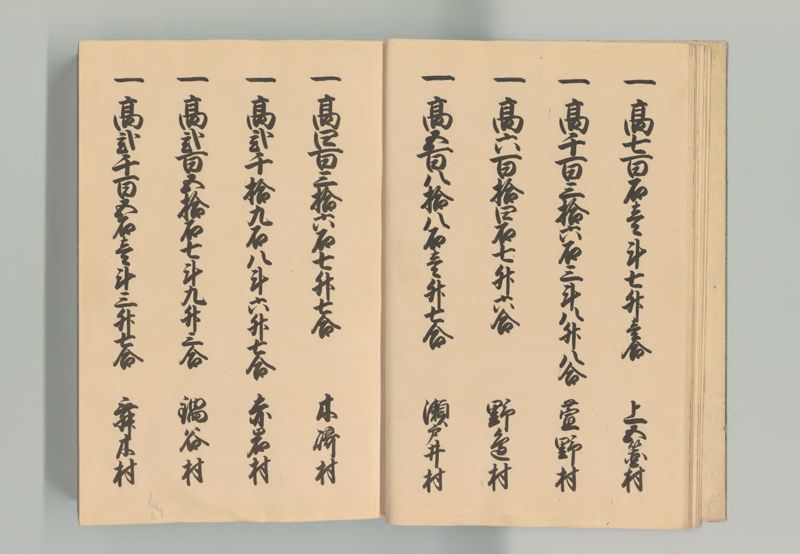 一 高七百石壱斗七升壱合 上五箇村
一 高千百三拾六石三斗八升八合 萱野村
一 高六百拾四石七升六合 野邊村
一 高五百八拾八石壱升七合 瀬戸井村
一 高四百三拾六石七升七合 木崎村
一 高弐千拾九石八斗六升七合 赤岩村
一 高弐百五拾石七斗九升三合 鍋谷村
一 高弐千百五石壱斗三升七合 舞木村